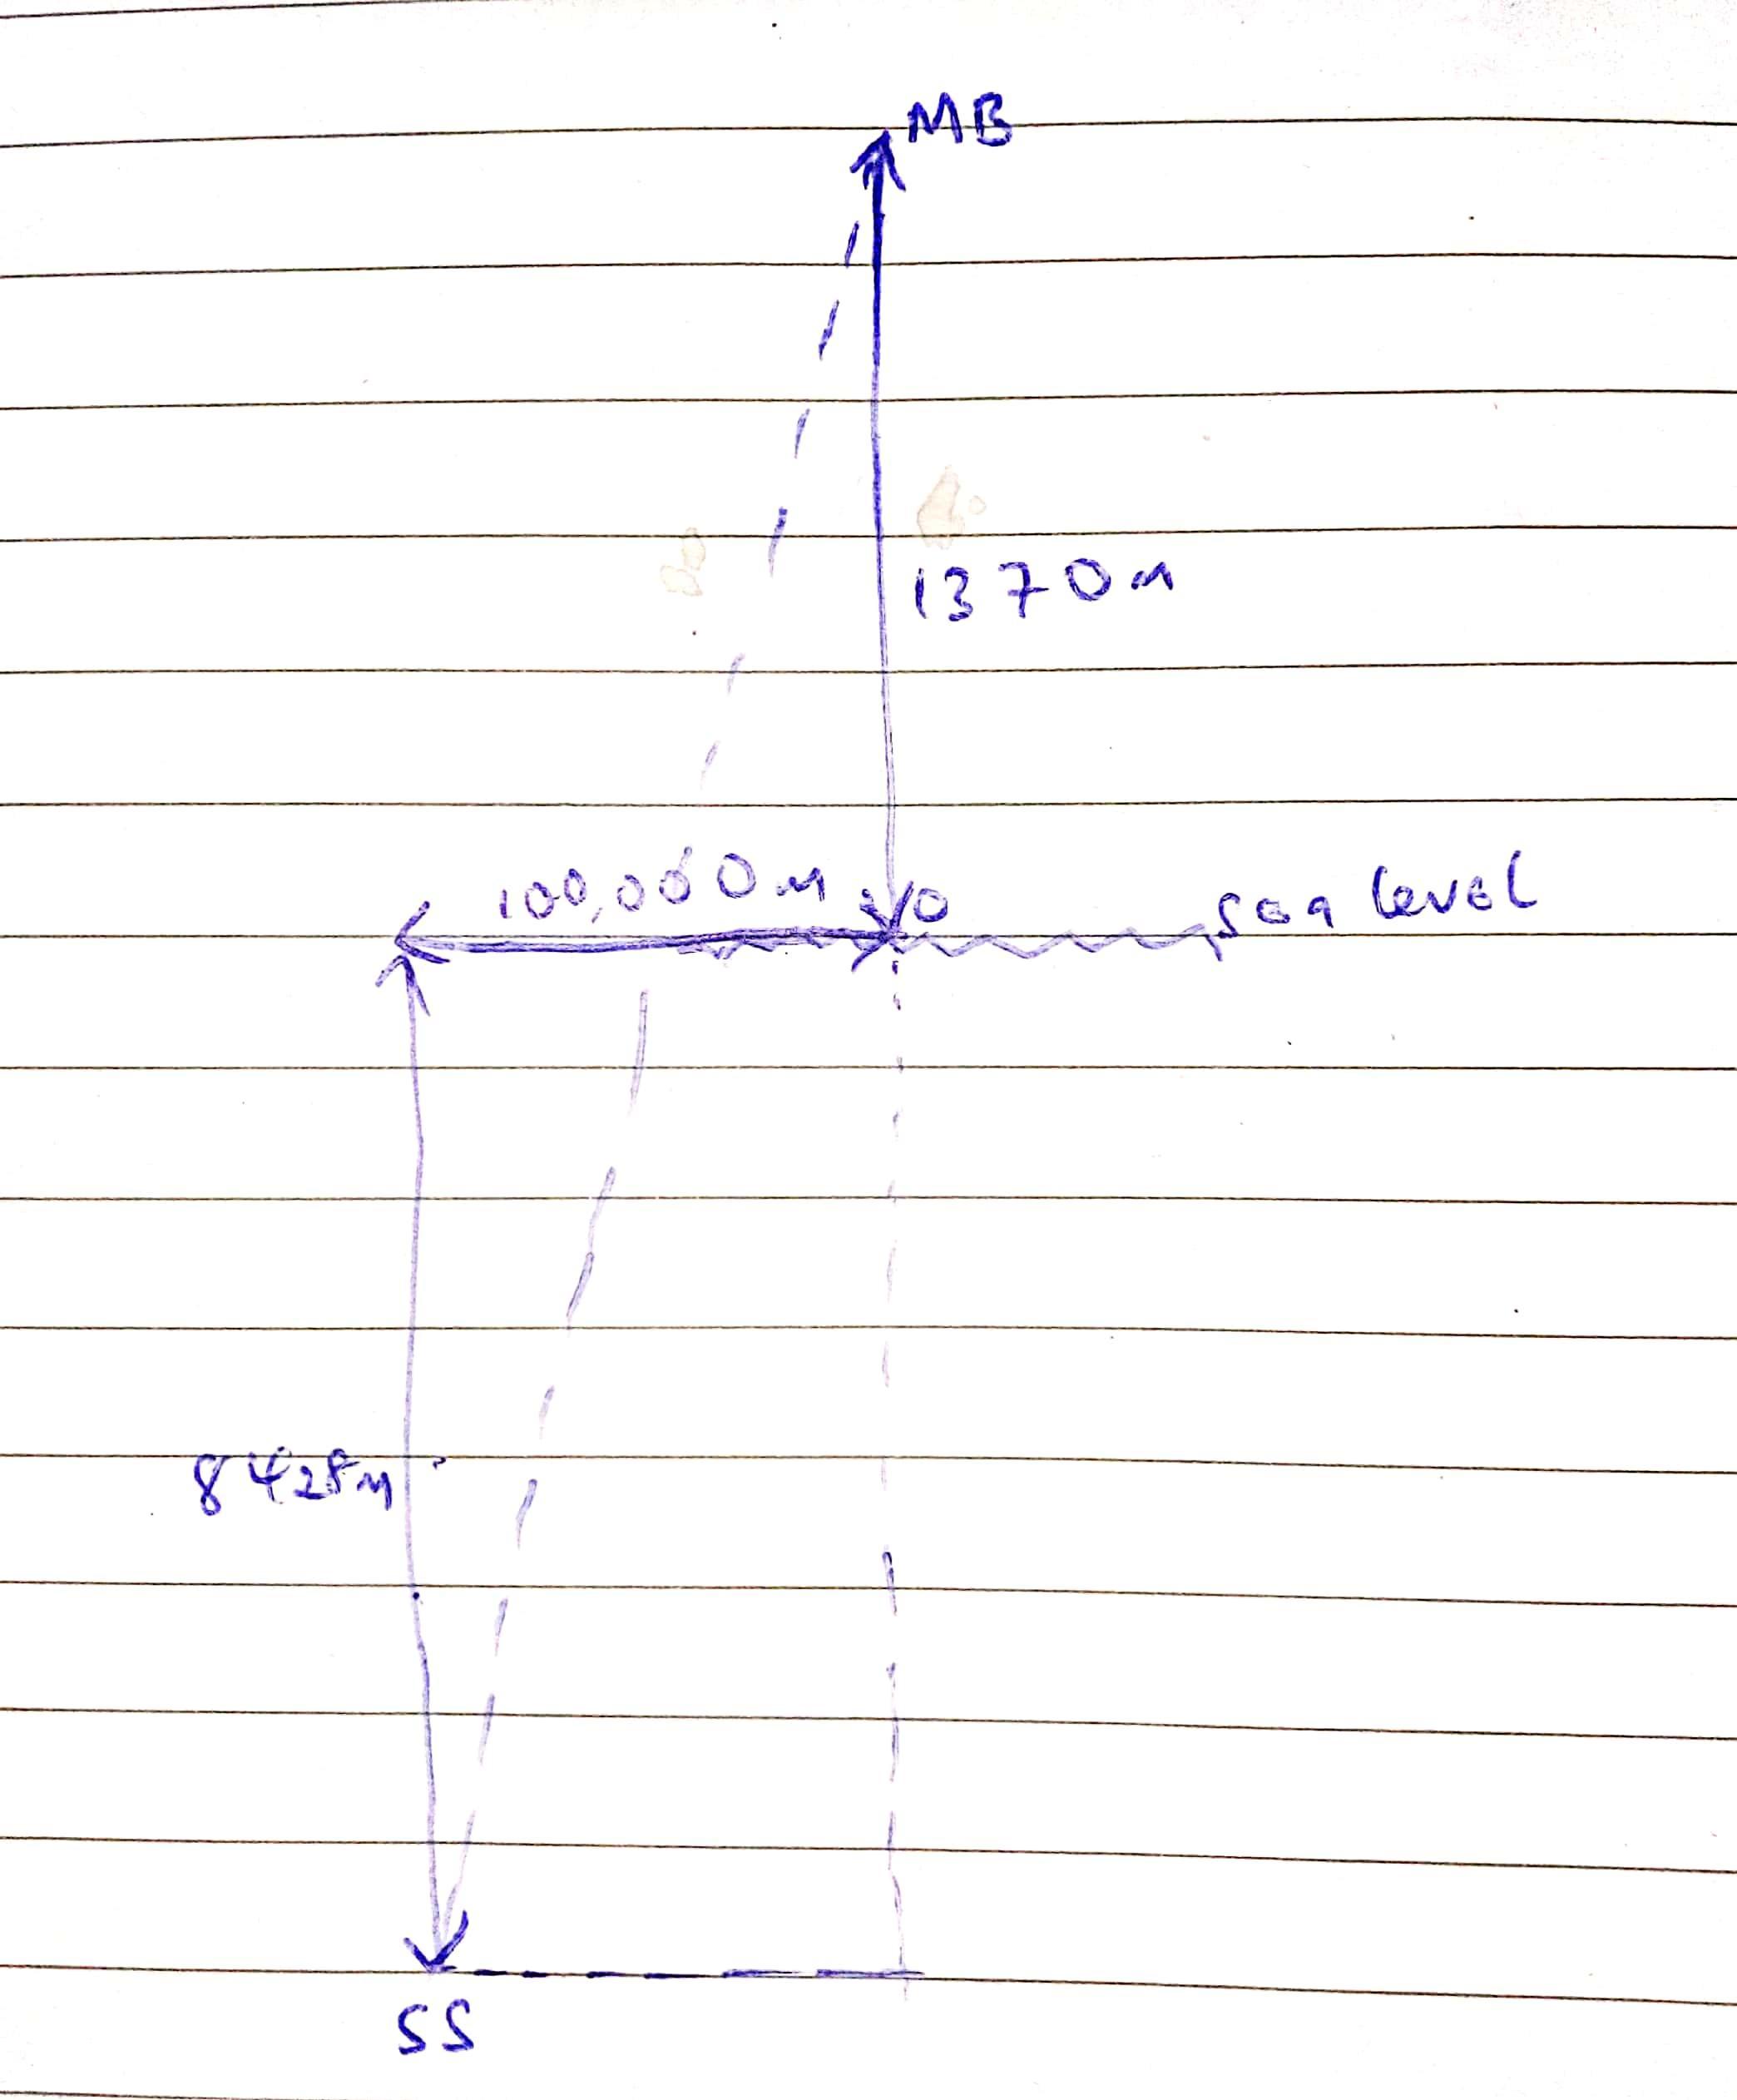 MB
1370m
100,000m O sea level
8428m
SS